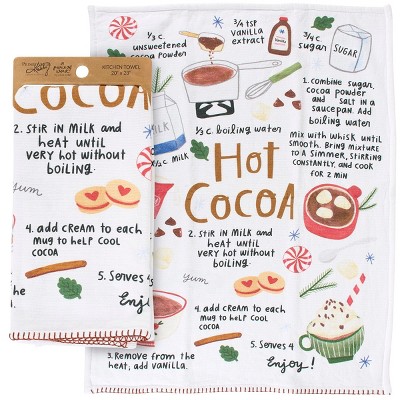 KITCHEN TOWEL
20" x 28"
COCOA
2. Stir in MILK and
heat until
very hot without
boiling.
yum
4. add cream to each
mug to help cool
cocoa
5. Serves 4
Enjoy!
1/3 c.
unsweetened
cocoa powder
3/4 tsp
vanilla
extract
3/4 c.
sugar
SUGAR
1. combine sugar,
cocoa powder
and salt in a
saucepan. Add
boiling water
1/3 c. boiling water
mix with whisk until
smooth. Bring mixture
to a Simmer, stirring
constantly, and cook
for 2 min
1/2 c. MILK
Hot
COCOA
2. Stir in MILK and
heat until
very hot without
boiling.
yum
4. add cream to each
mug to help cool
cocoa
5. Serves 4
Enjoy!
3. Remove from the
heat; add vanilla.